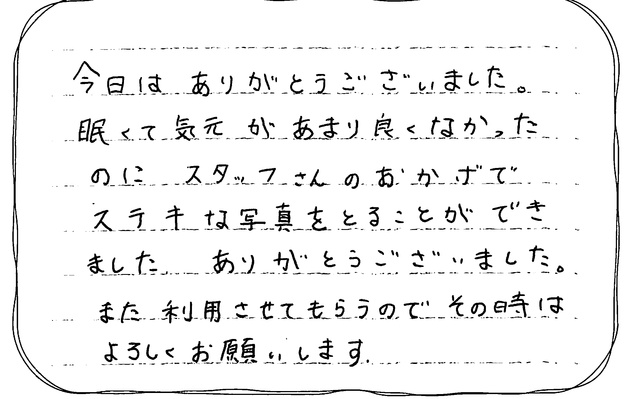 今日は ありがとうございました。
眠くて気元があまり良くなかった
のに スタッフさんのおかげで
ステキな写真をとることができ
ました。 ありがとうございました。
また利用させてもらうので その時は
よろしくお願いします。